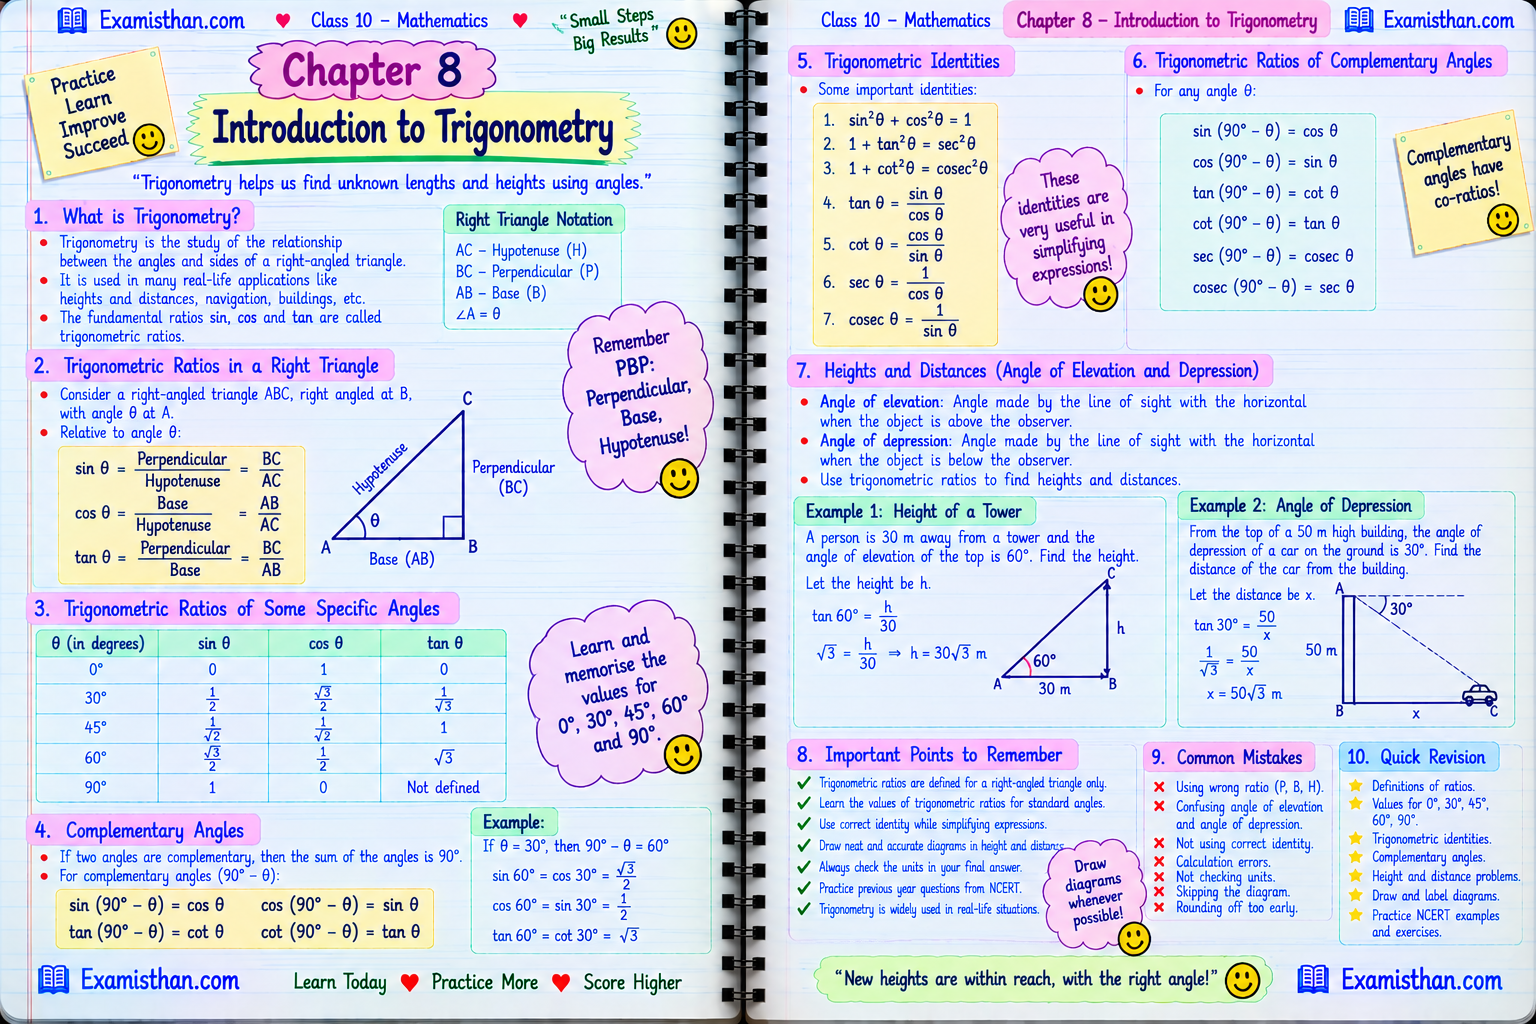 Examisthan.com ♥ Class 10 – Mathematics ♥ “Small Steps
Big Results”
Practice
Learn
Improve
Succeed
Chapter 8
Introduction to Trigonometry
“Trigonometry helps us find unknown lengths and heights using angles.”
1. What is Trigonometry?
• Trigonometry is the study of the relationship
between the angles and sides of a right-angled triangle.
• It is used in many real-life applications like
heights and distances, navigation, buildings, etc.
• The fundamental ratios sin, cos and tan are called
trigonometric ratios.
Right Triangle Notation
AC – Hypotenuse (H)
BC – Perpendicular (P)
AB – Base (B)
∠A = θ
Remember
PBP:
Perpendicular,
Base,
Hypotenuse!
2. Trigonometric Ratios in a Right Triangle
• Consider a right-angled triangle ABC, right angled at B,
with angle θ at A.
• Relative to angle θ:
sin θ = Perpendicular/Hypotenuse = BC/AC
cos θ = Base/Hypotenuse = AB/AC
tan θ = Perpendicular/Base = BC/AB
C
Hypotenuse
Perpendicular
(BC)
θ
A
B
Base (AB)
3. Trigonometric Ratios of Some Specific Angles
θ (in degrees) sin θ cos θ tan θ
0° 0 1 0
30° 1/2 √3/2 1/√3
45° 1/√2 1/√2 1
60° √3/2 1/2 √3
90° 1 0 Not defined
Learn and
memorise the
values for
0°, 30°, 45°, 60°
and 90°.
4. Complementary Angles
• If two angles are complementary, then the sum of the angles is 90°.
• For complementary angles (90° – θ):
sin (90° – θ) = cos θ cos (90° – θ) = sin θ
tan (90° – θ) = cot θ cot (90° – θ) = tan θ
Example:
If θ = 30°, then 90° – θ = 60°
sin 60° = cos 30° = √3/2
cos 60° = sin 30° = 1/2
tan 60° = cot 30° = √3
Examisthan.com Learn Today ♥ Practice More ♥ Score Higher
Class 10 – Mathematics Chapter 8 – Introduction to Trigonometry Examisthan.com
5. Trigonometric Identities
• Some important identities:
1. sin²θ + cos²θ = 1
2. 1 + tan²θ = sec²θ
3. 1 + cot²θ = cosec²θ
4. tan θ = sin θ/cos θ
5. cot θ = cos θ/sin θ
6. sec θ = 1/cos θ
7. cosec θ = 1/sin θ
These
identities are
very useful in
simplifying
expressions!
6. Trigonometric Ratios of Complementary Angles
• For any angle θ:
sin (90° – θ) = cos θ
cos (90° – θ) = sin θ
tan (90° – θ) = cot θ
cot (90° – θ) = tan θ
sec (90° – θ) = cosec θ
cosec (90° – θ) = sec θ
Complementary
angles have
co-ratios!
7. Heights and Distances (Angle of Elevation and Depression)
• Angle of elevation: Angle made by the line of sight with the horizontal
when the object is above the observer.
• Angle of depression: Angle made by the line of sight with the horizontal
when the object is below the observer.
• Use trigonometric ratios to find heights and distances.
Example 1: Height of a Tower
A person is 30 m away from a tower and the
angle of elevation of the top is 60°. Find the height.
Let the height be h.
tan 60° = h/30
√3 = h/30 ⇒ h = 30√3 m
C
h
60°
A
B
30 m
Example 2: Angle of Depression
From the top of a 50 m high building, the angle of
depression of a car on the ground is 30°. Find the
distance of the car from the building.
Let the distance be x.
tan 30° = 50/x
1/√3 = 50/x
x = 50√3 m
A
30°
50 m
B
x
C
8. Important Points to Remember
✓ Trigonometric ratios are defined for a right-angled triangle only.
✓ Learn the values of trigonometric ratios for standard angles.
✓ Use correct identity while simplifying expressions.
✓ Draw neat and accurate diagrams in height and distance
✓ Always check the units in your final answer.
✓ Practice previous year questions from NCERT.
✓ Trigonometry is widely used in real-life situations.
Draw
diagrams
whenever
possible!
9. Common Mistakes
✗ Using wrong ratio (P, B, H).
✗ Confusing angle of elevation
and angle of depression.
✗ Not using correct identity.
✗ Calculation errors.
✗ Not checking units.
✗ Skipping the diagram.
✗ Rounding off too early.
10. Quick Revision
★ Definitions of ratios.
★ Values for 0°, 30°, 45°,
60°, 90°.
★ Trigonometric identities.
★ Complementary angles.
★ Height and distance problems.
★ Draw and label diagrams.
★ Practice NCERT examples
and exercises.
“New heights are within reach, with the right angle!”
Examisthan.com